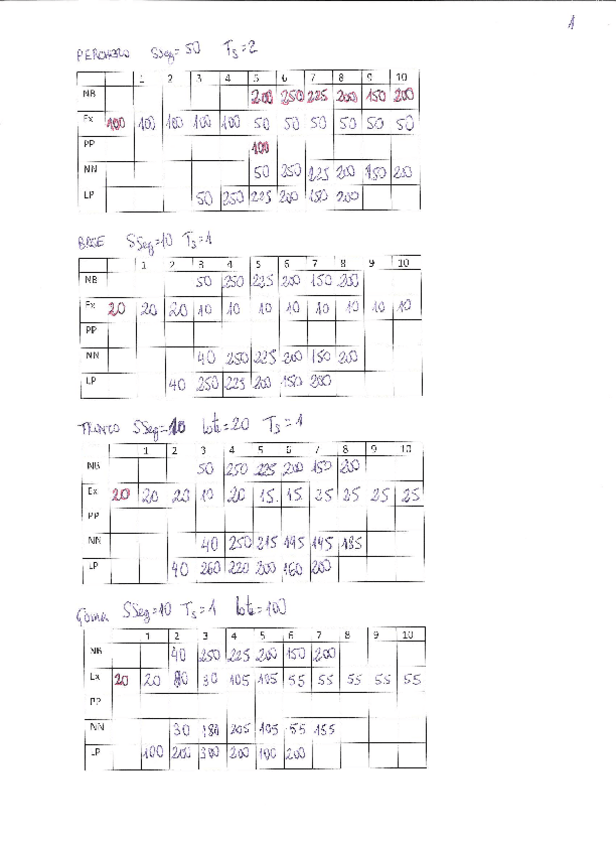 1
PERCHERO SSeg=50 Ts=2
1 2 3 4 5 6 7 8 9 10
NB 200 250 225 200 150 200
Ex 100 100 100 100 100 50 50 50 50 50 50
PP 100
NN 50 250 225 200 150 200
LP 50 250 225 200 150 200
BASE SSeg=10 Ts=1
1 2 3 4 5 6 7 8 9 10
NB 50 250 225 200 150 200
Ex 20 20 20 10 10 10 10 10 10 10 10
PP
NN 40 250 225 200 150 200
LP 40 250 225 200 150 200
TRONCO SSeg=10 lote=20 Ts=1
1 2 3 4 5 6 7 8 9 10
NB 50 250 225 200 150 200
Ex 20 20 20 10 20 15 15 25 25 25 25
PP
NN 40 250 215 195 145 185
LP 40 260 220 200 160 200
Goma SSeg=10 Ts=1 lote=100
1 2 3 4 5 6 7 8 9 10
NB 40 250 225 200 150 200
Ex 20 20 80 30 105 105 55 55 55 55 55
PP
NN 30 180 205 105 55 155
LP 100 200 300 200 100 200